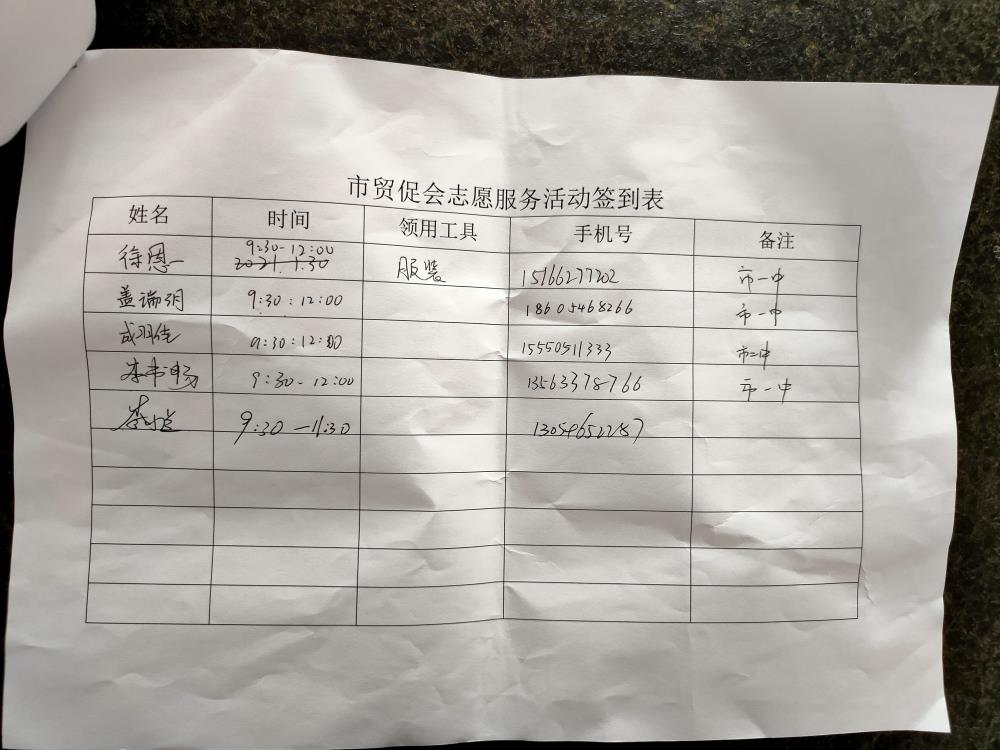 市贸促会志愿服务活动签到表
姓名 时间 领用工具 手机号 备注
徐恩一 9:30-12:00 2021.1.30 服装 15166277202 市一中
盖瑞玥 9:30:12:00 18605468266 市一中
成羽佳 9:30:12:00 15550511333 市二中
李书畅 9:30-12:00 13563378766 市一中
9:30—11:30 13054652287